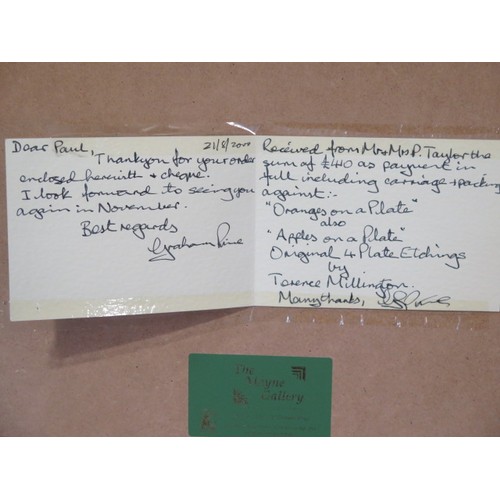 Dear Paul, 21/8/2000
Thankyou for your order
enclosed herewith + cheque.
I look forward to seeing you
again in November.
Best regards
Graham
Received from Mr & Mrs P. Taylor the
sum of £440 as payment in
full including carriage + packing
against:-
"Oranges on a Plate"
also
"Apples on a Plate"
Original 4 Plate Etchings
by
Terence Millington.
Many thanks,
The
Mayne
Gallery